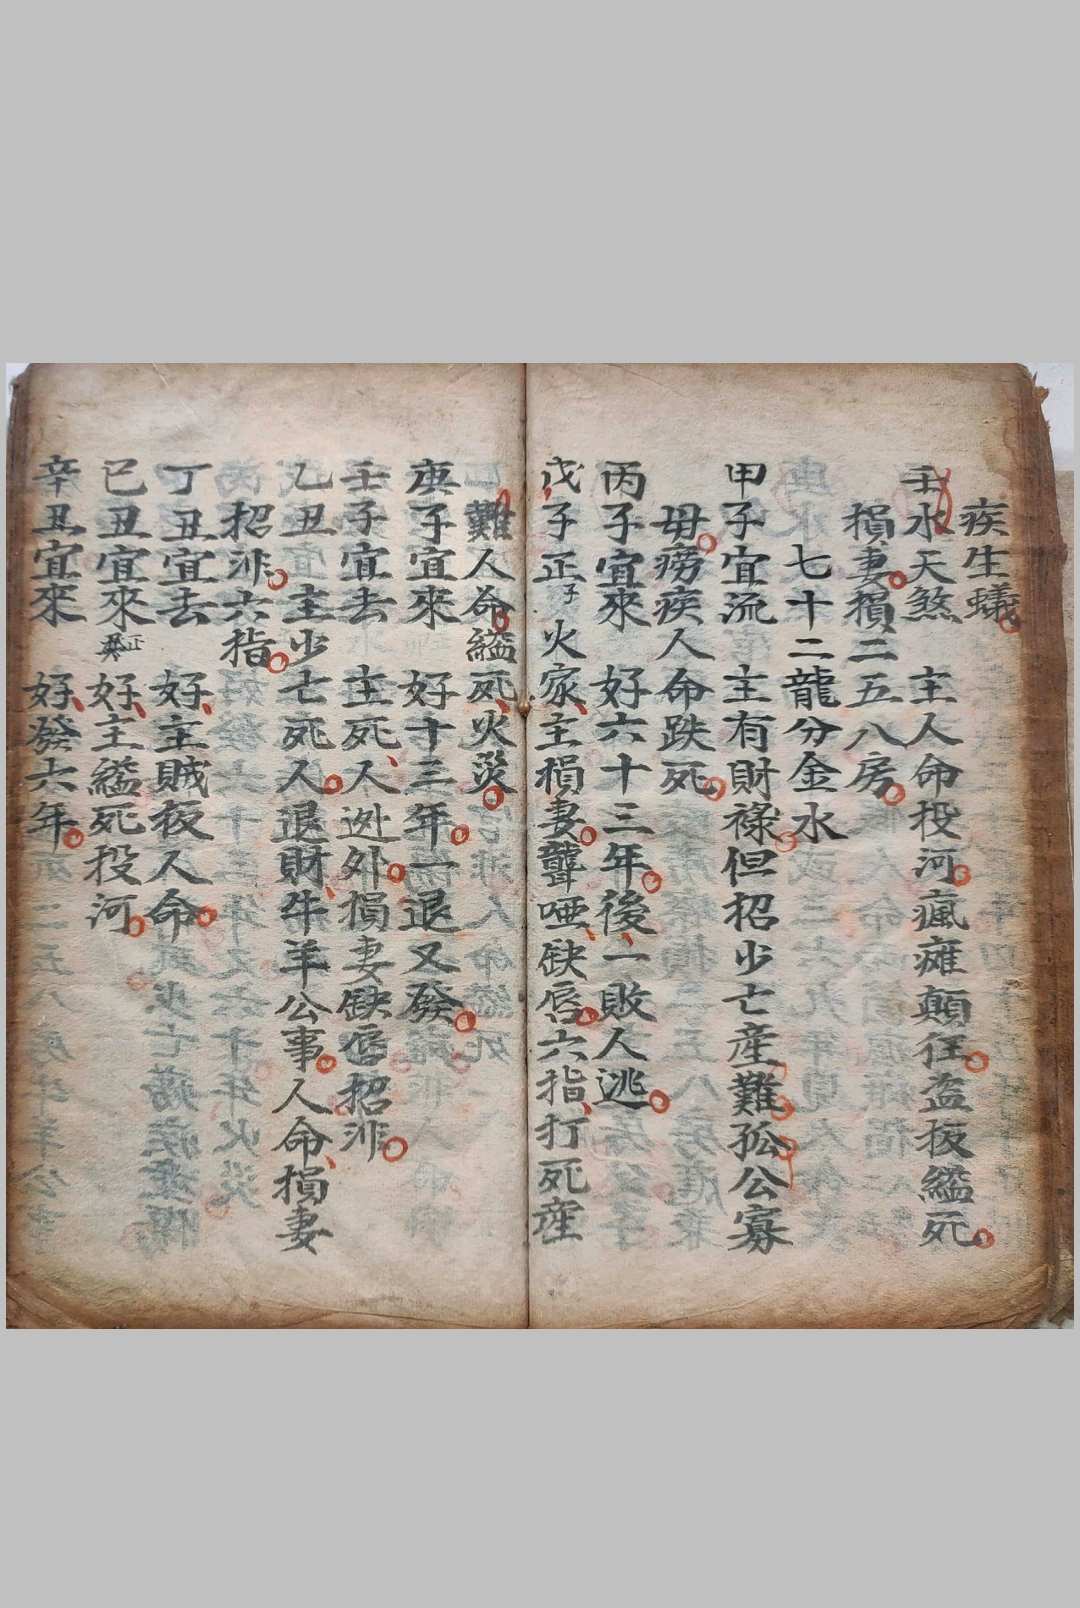 疾生蟻
壬水天煞 主人命投河瘋癱顛狂盗扳縊死
損妻損二五八房
七十二龍分金水
甲子宜流 主有財祿但招少亡産難孤公寡
母癆疾人命跌死
丙子宜來 好六十三年後一敗人逃
戊子正子火家主損妻聾啞缺唇六指打死產
難人命縊死火災
庚子宜來 好十三年一退又發
壬子宜去 主死人迯外損妻缺唇招非
乙丑 主少亡死人退財牛羊公事人命損妻
招非六指
丁丑宜去 好主賊扳人命
己丑宜來正 好主縊死投河
辛丑宜來 好發六年